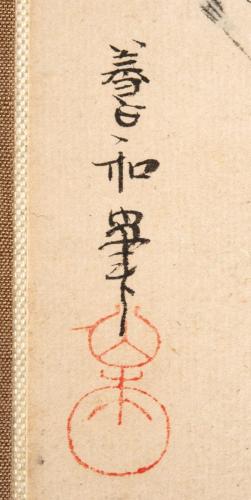 養和筆